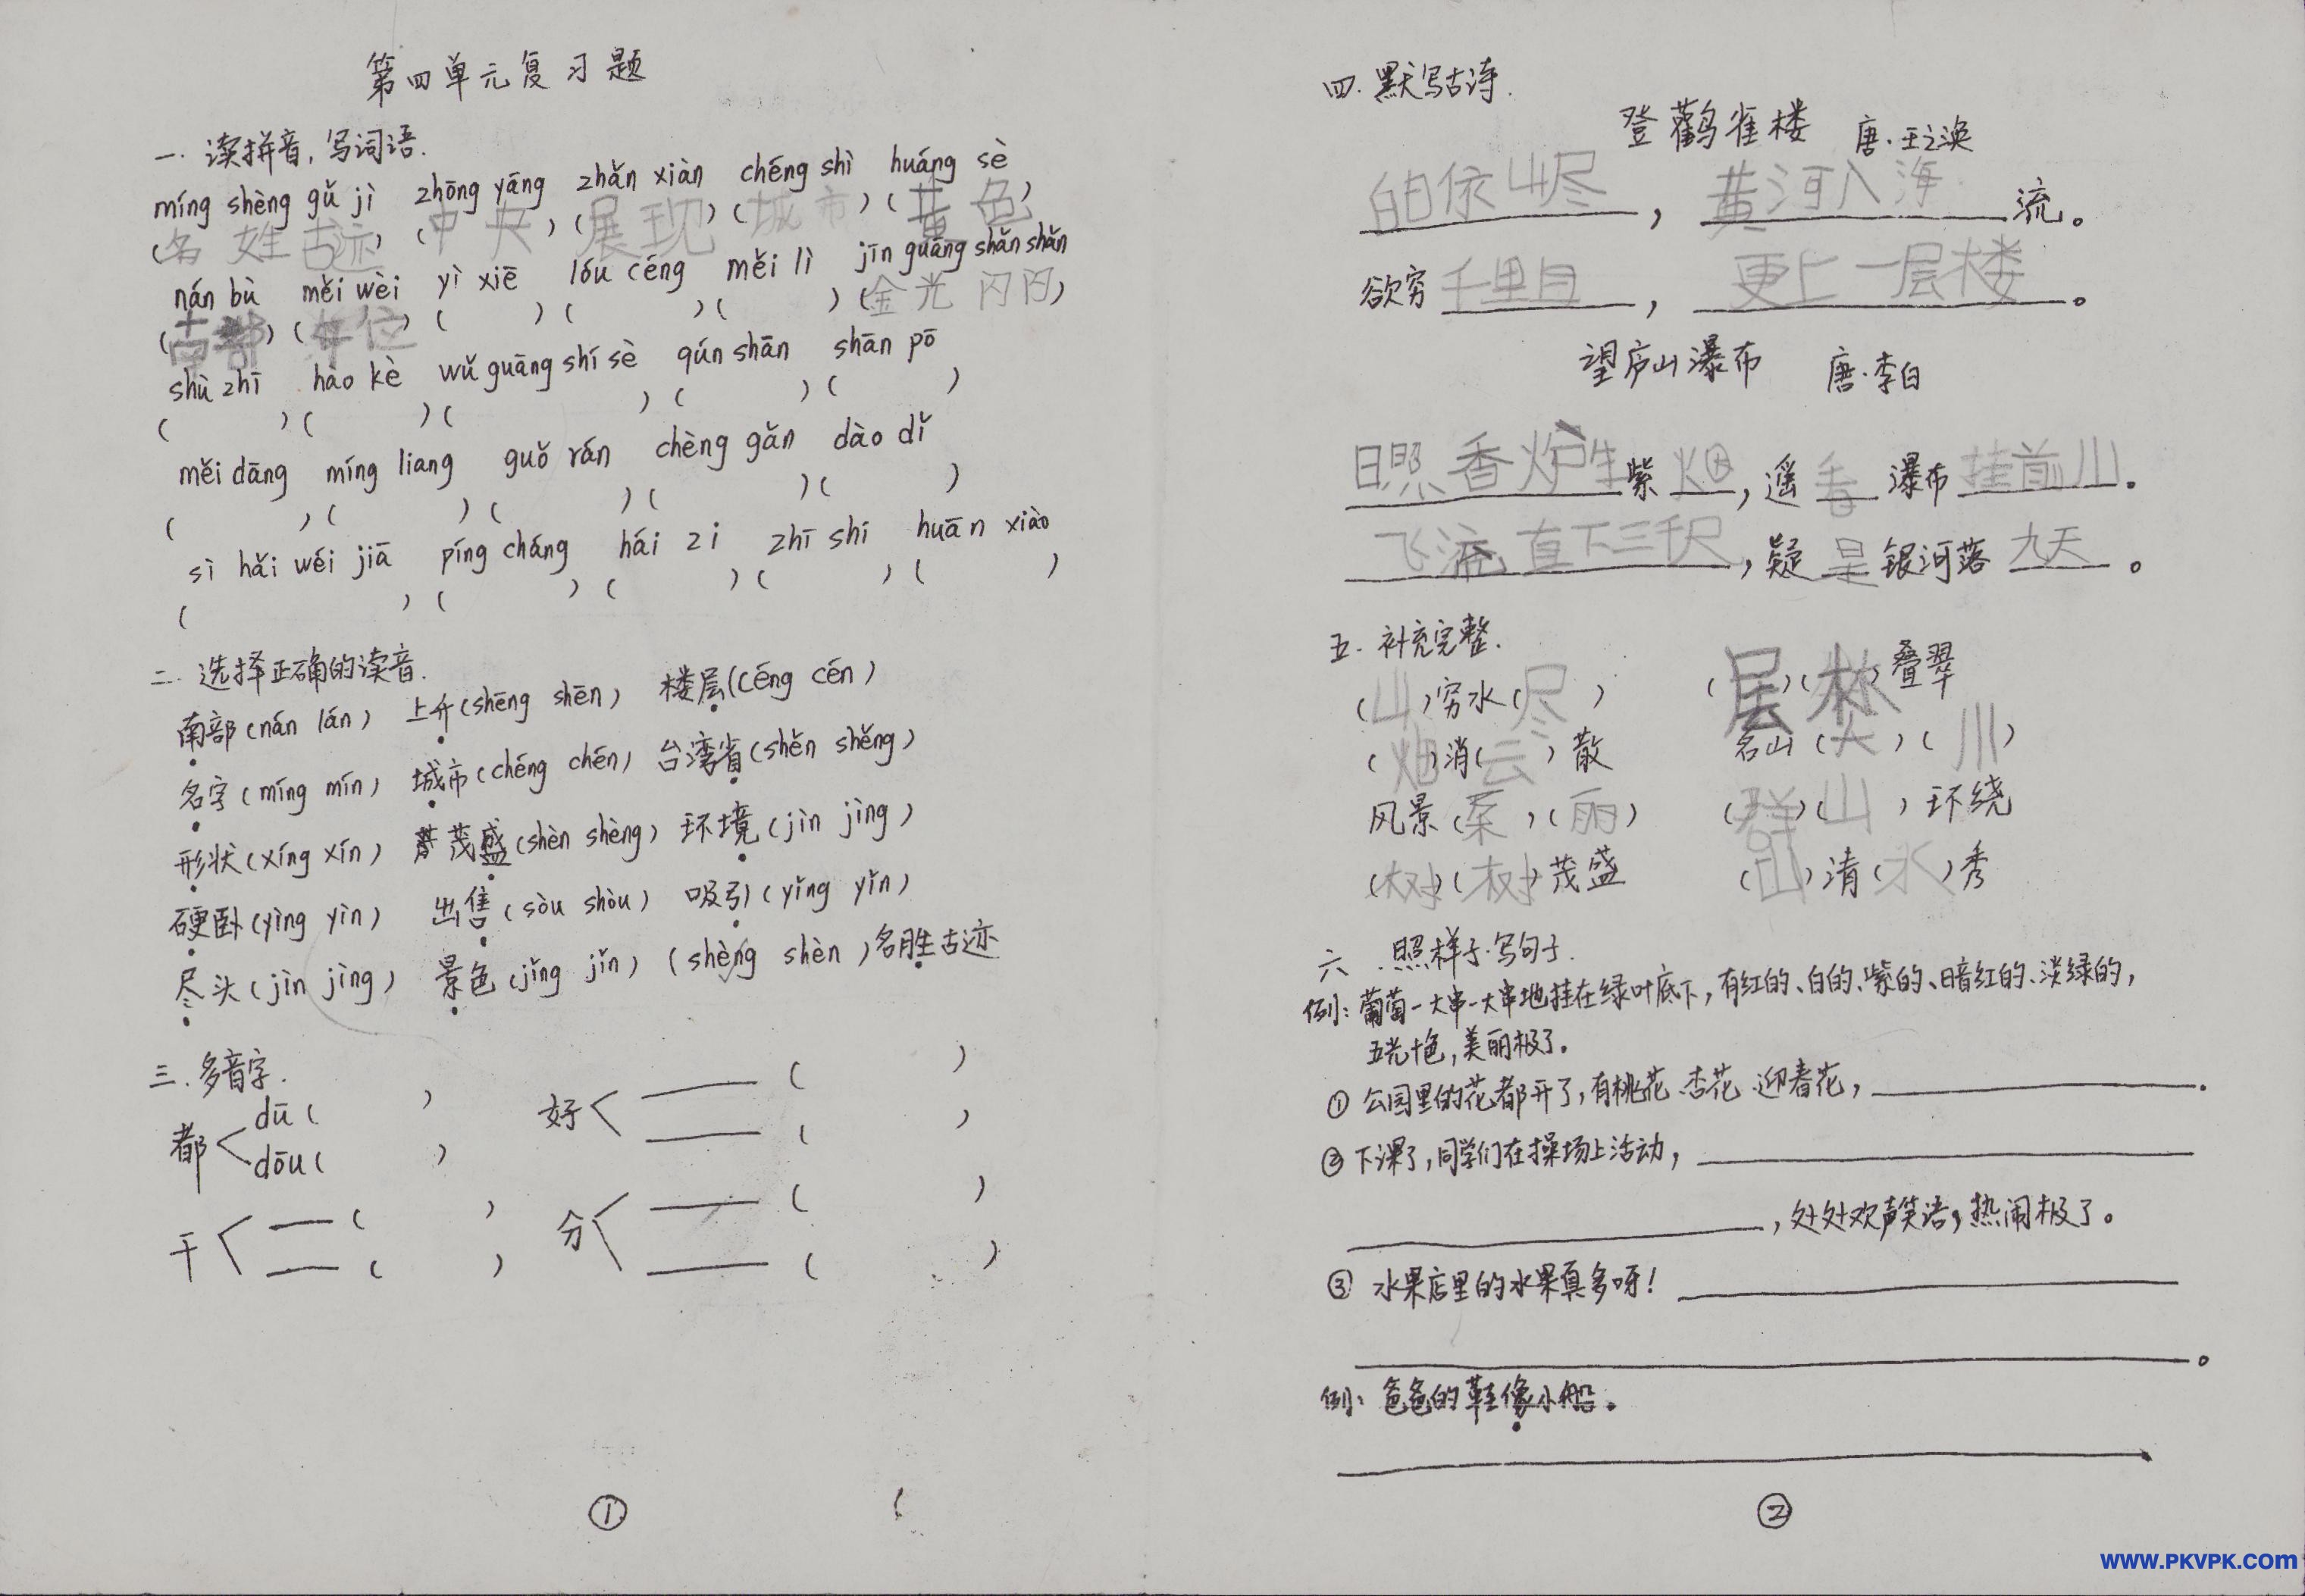 第四单元复习题
一.读拼音,写词语.
míng shèng gǔ jì zhōng yāng zhǎn xiàn chéng shì huáng sè
(名姓古迹)(中央)(展现)(城市)(黄色)
nán bù měi wèi yì xiē lóu céng měi lì jīn guāng shǎn shǎn
(南部)(年位)( )( )( )(金光闪闪)
shù zhī hào kè wǔ guāng shí sè qún shān shān pō
( )( )( )( )( )
měi dāng míng liang guǒ rán chèng gǎn dào dǐ
( )( )( )( )( )
sì hǎi wéi jiā píng cháng hái zi zhī shi huān xiào
( )( )( )( )( )
二.选择正确的读音.
南部(nán lán) 上升(shēng shēn) 楼层(céng cén)
名字(míng mín) 城市(chéng chén) 台湾省(shěn shěng)
形状(xíng xín) 茂盛(shèn shèng) 环境(jìn jìng)
硬卧(yìng yìn) 出售(sòu shòu) 吸引(yǐng yǐn)
尽头(jìn jìng) 景色(jǐng jǐn) (shèng shèn)名胜古迹
三.多音字.
都 dū( )
dōu( )
好 ( )
( )
干 ( )
( )
分 ( )
( )
①
四.默写古诗.
登鹳雀楼 唐·王之涣
白日依山尽,黄河入海流。
欲穷千里目,更上一层楼。
望庐山瀑布 唐·李白
日照香炉生紫烟,遥看瀑布挂前川.
飞流直下三千尺,疑是银河落九天。
五.补充完整.
(山)穷水(尽) (层)(林)叠翠
(烟)消(云)散 名山(大)(川)
风景(秀)(丽) (群)(山)环绕
(树)(树)茂盛 (山)清(水)秀
六.照样子.写句子.
例:葡萄一大串一大串地挂在绿叶底下,有红的、白的、紫的、暗红的、淡绿的,
五光十色,美丽极了。
①公园里的花都开了,有桃花.杏花.迎春花,.
②下课了,同学们在操场上活动,
,处处欢声笑语,热闹极了。
③水果店里的水果真多呀!
。
例:爸爸的鞋像小船。
②
www.PKVPK.com